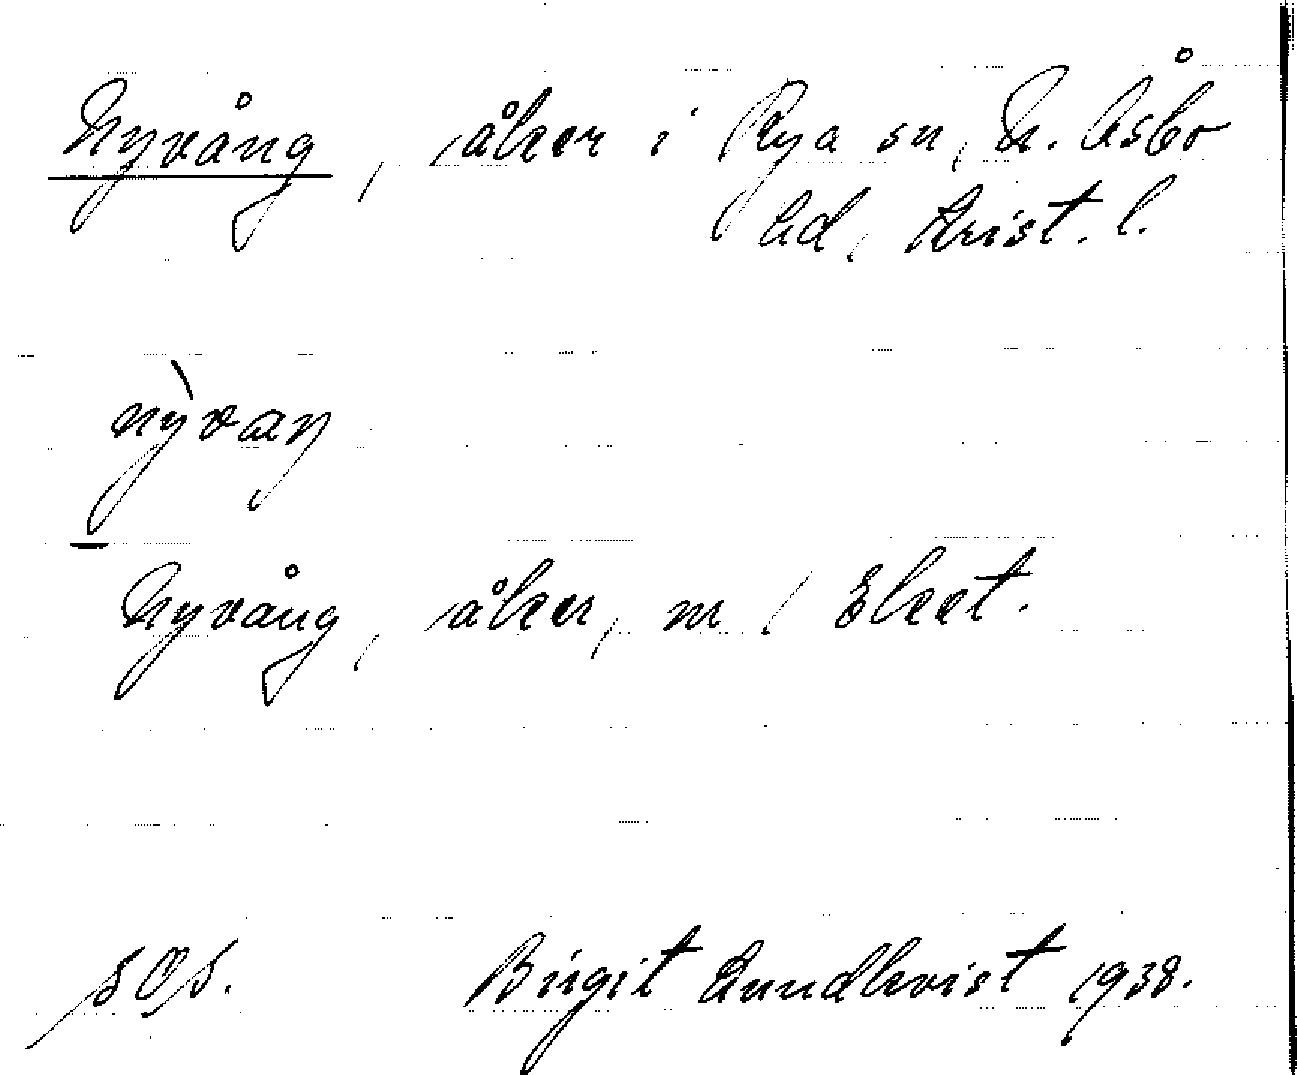 Nyvång, åker i Rya sn, N. Åsbo
hd, Krist. l.
nỳvaŋ
Nyvång, åker, m / Eket.
SOS. Birgit Lundkvist 1938.